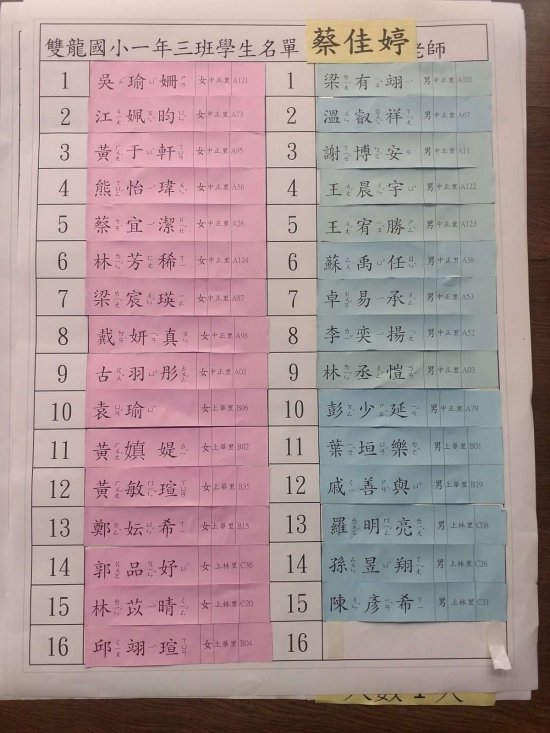 雙龍國小一年三班學生名單 蔡佳婷 老師
1 吳瑜姍 女 中正里 A121 1 梁有翊 男 中正里 A101
2 江姵昀 女 中正里 A73 2 溫叡祥 男 中正里 A67
3 黃于軒 女 中正里 A95 3 謝博安 男 中正里 A11
4 熊怡瑋 女 中正里 A56 4 王晨宇 男 中正里 A122
5 蔡宜潔 女 中正里 A26 5 王宥勝 男 中正里 A123
6 林芳稀 女 中正里 A124 6 蘇禹任 男 中正里 A38
7 梁宸瑛 女 中正里 A87 7 卓易承 男 中正里 A53
8 戴妍真 女 中正里 A98 8 李奕揚 男 中正里 A52
9 古羽彤 女 中正里 A02 9 林丞愷 男 中正里 A03
10 袁瑜 女 上華里 B06 10 彭少延 男 中正里 A79
11 黃嫃媞 女 上華里 B02 11 葉垣樂 男 上華里 B01
12 黃敏瑄 女 上華里 B35 12 戚善與 男 上華里 B19
13 鄭妘希 女 上華里 B15 13 羅明亮 男 上林里 C08
14 郭品妤 女 上林里 C36 14 孫昱翔 男 上林里 C26
15 林苡晴 女 上林里 C20 15 陳彥希 男 上林里 C31
16 邱翊瑄 女 上華里 B04 16